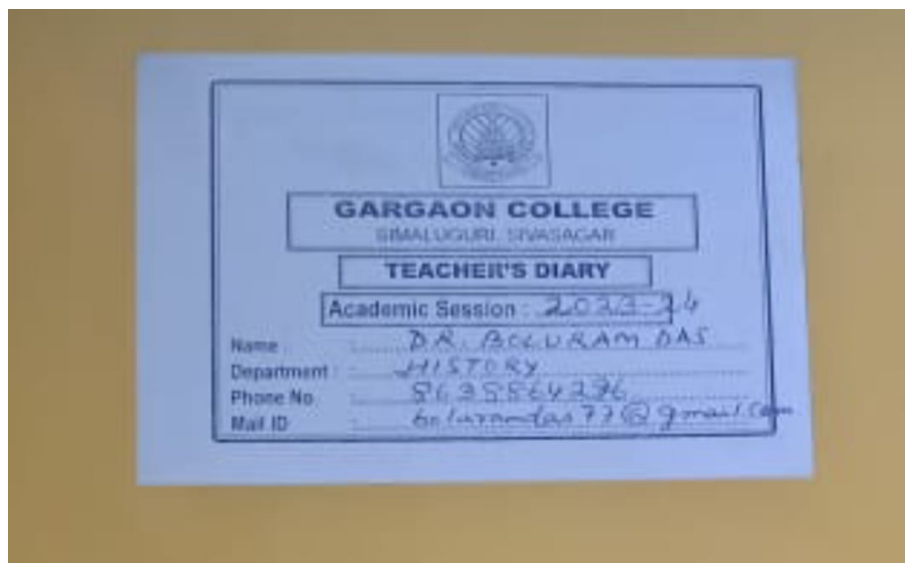 GARGAON COLLEGE
SIMALUGURI, SIVASAGAR
TEACHER'S DIARY
Academic Session : 2023-24
Name : DR. BOLURAM DAS
Department : HISTORY
Phone No :
Mail ID : @gmail.com